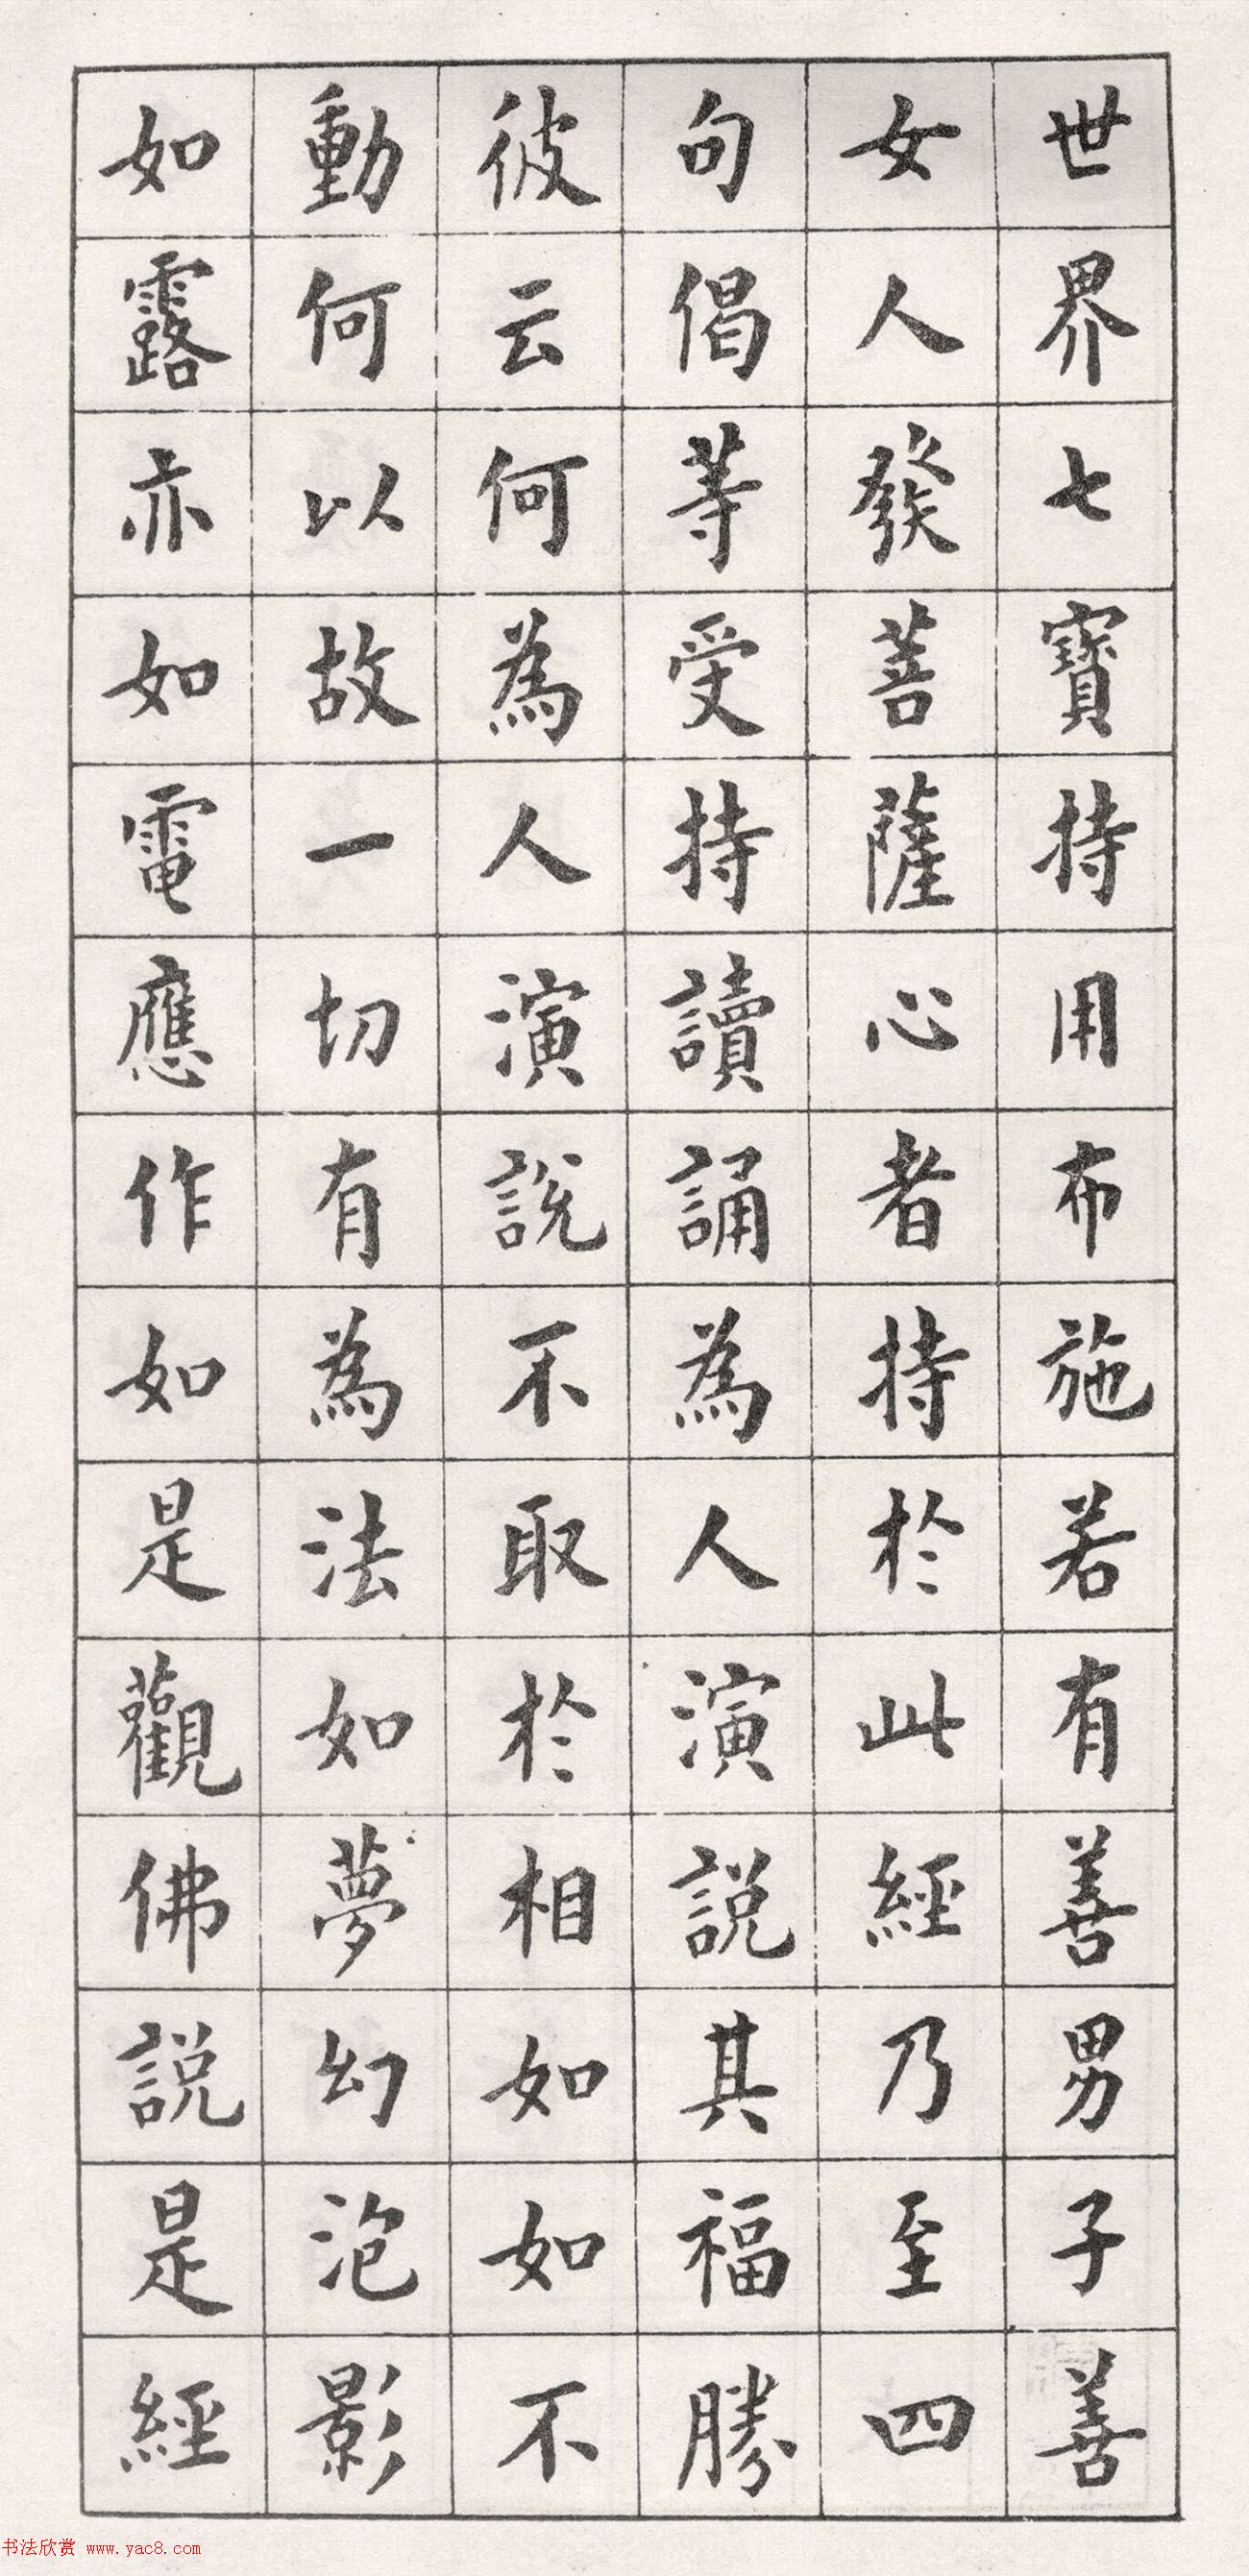 世界七寶持用布施若有善男子善
女人發菩薩心者持於此經乃至四
句偈等受持讀誦為人演說其福勝
彼云何為人演說不取於相如如不
動何以故一切有為法如夢幻泡影
如露亦如電應作如是觀佛說是經
书法欣赏 www.yac8.com